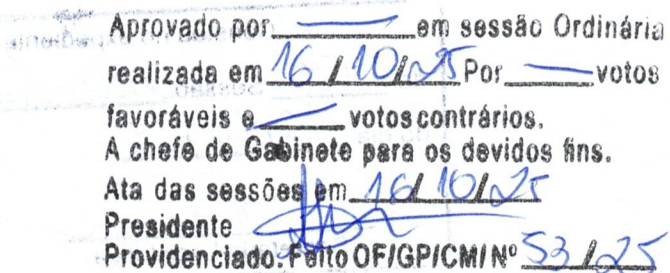 Aprovado por em sessão Ordinária
realizada em 16/10/25 Por votos
favoráveis e votos contrários.
A chefe de Gabinete para os devidos fins.
Ata das sessões em 16/10/25
Presidente
Providenciado. Feito OF/GP/CM/Nº 53/25